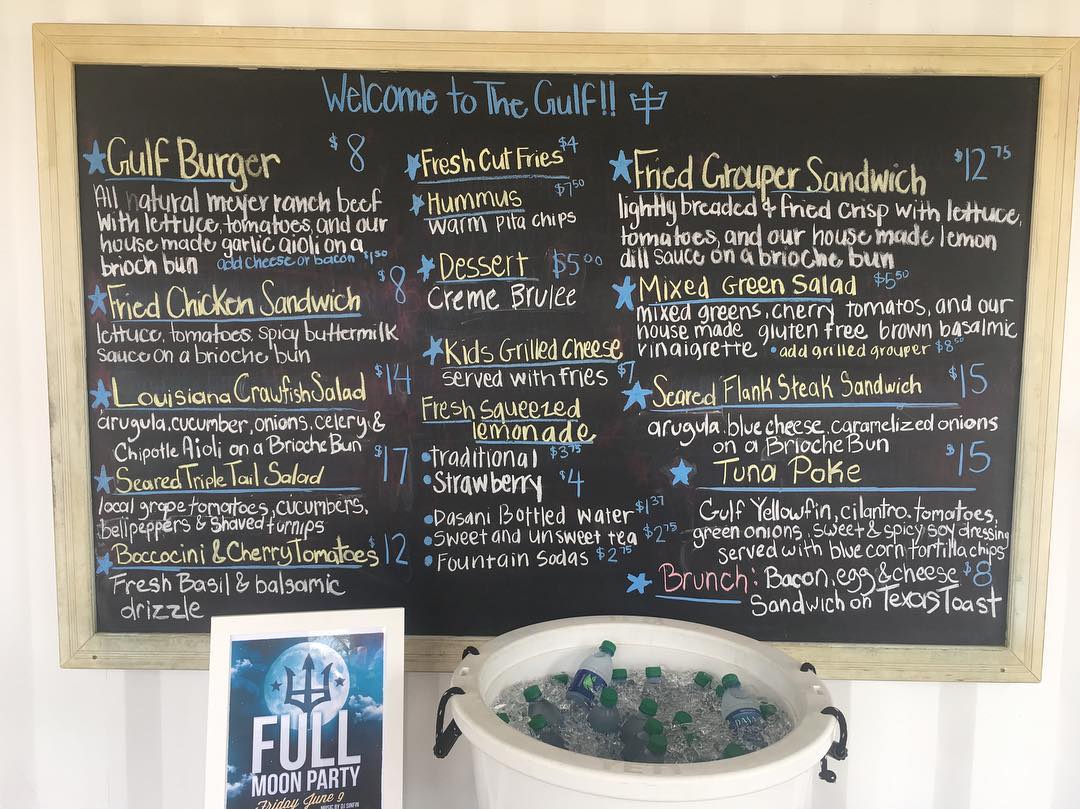 Welcome to The Gulf!!
Gulf Burger $8
All natural meyer ranch beef
with lettuce, tomatoes, and our
house made garlic aioli on a
brioch bun add cheese or bacon $1.50
Fried Chicken Sandwich $8
lettuce, tomatoes, spicy buttermilk
sauce on a brioche bun
Louisiana Crawfish Salad $14
arugula, cucumber, onions, celery, &
Chipotle Aioli on a Brioche Bun
Seared Triple Tail Salad $17
local grape tomatoes, cucumbers,
bellpeppers & shaved turnips
Boccocini & Cherry Tomatoes $12
Fresh Basil & balsamic
drizzle
Fresh Cut Fries $4
Hummus $7.50
warm pita chips
Dessert $5.00
Creme Brulee
Kids Grilled Cheese
served with fries $7
Fresh Squeezed
lemonade
•traditional $3.75
•Strawberry $4
•Dasani Bottled Water $1.37
•Sweet and unsweet tea $2.75
•Fountain Sodas $2.75
Fried Grouper Sandwich $12.75
lightly breaded & fried crisp with lettuce,
tomatoes, and our house made lemon
dill sauce on a brioche bun
Mixed Green Salad $5.50
mixed greens, cherry tomatos, and our
house made gluten free brown basalmic
vinaigrette •add grilled grouper $8.50
Seared Flank Steak Sandwich $15
arugula, blue cheese, caramelized onions
on a Brioche Bun
Tuna Poke $15
Gulf Yellowfin, cilantro, tomatoes,
green onions, sweet & spicy soy dressing
served with blue corn tortilla chips
Brunch: Bacon, egg & cheese $8
Sandwich on Texas Toast
FULL
MOON PARTY
Friday June 9
MUSIC BY DJ SINFIN
DASANI